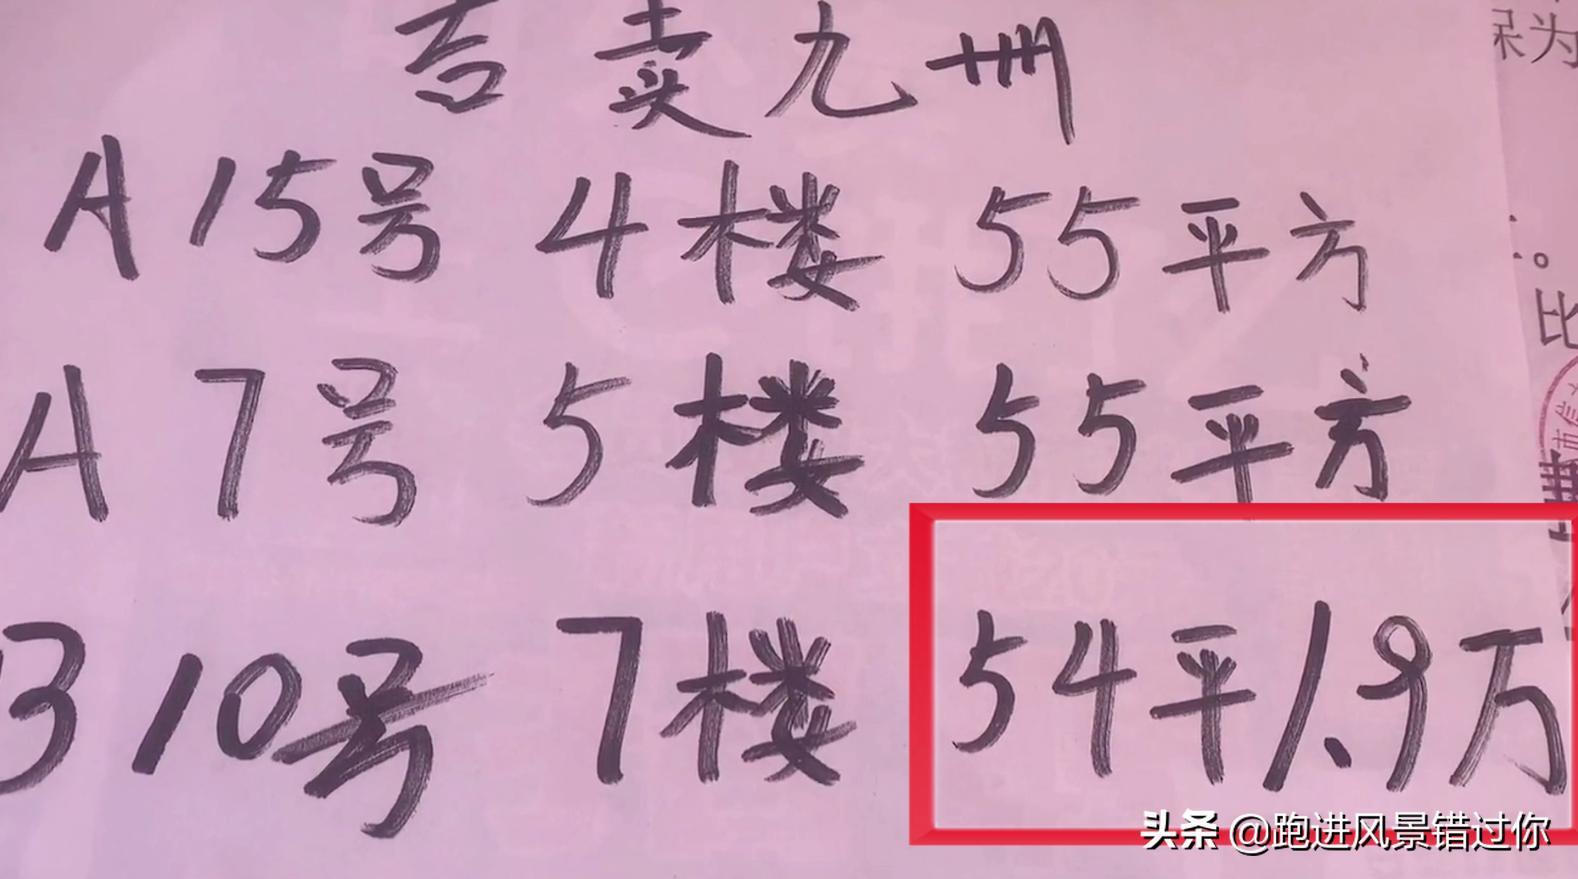 吉卖九州
A 15号 4楼 55平方
A 7号 5楼 55平方
B 10号 7楼 54平1.9万
保为
比
头条 @跑进风景错过你